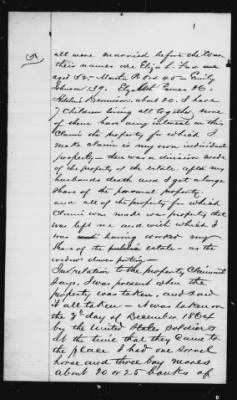 all were married before the war
their names are Eliza L. Fox one
aged 52 - Martin R Box 45 - Emily
Johnson 39. Elizabeth 36.
Adelin Dennison, about 30. I have
7 Children living all together none
of them having any interest in this
Claim the property for which I
make claim is my own individual
property - there was a division made
of the property of the estate, after my
husbands death and I got a large
share of the personal property.
and all of the property for which
Claim was made was property that
was left me and with which I
was having worked my
share of the estate - as the
widows dower portion -
In relation to the property Claimant
says. I was present when the
property was taken, and said
it all taken - it was taken on
the 7th day of December 1864
by the United States Soldiers
at the time that they came to
the place I had one Sorrel
horse and three bay mares
about 20 or 25 banks of